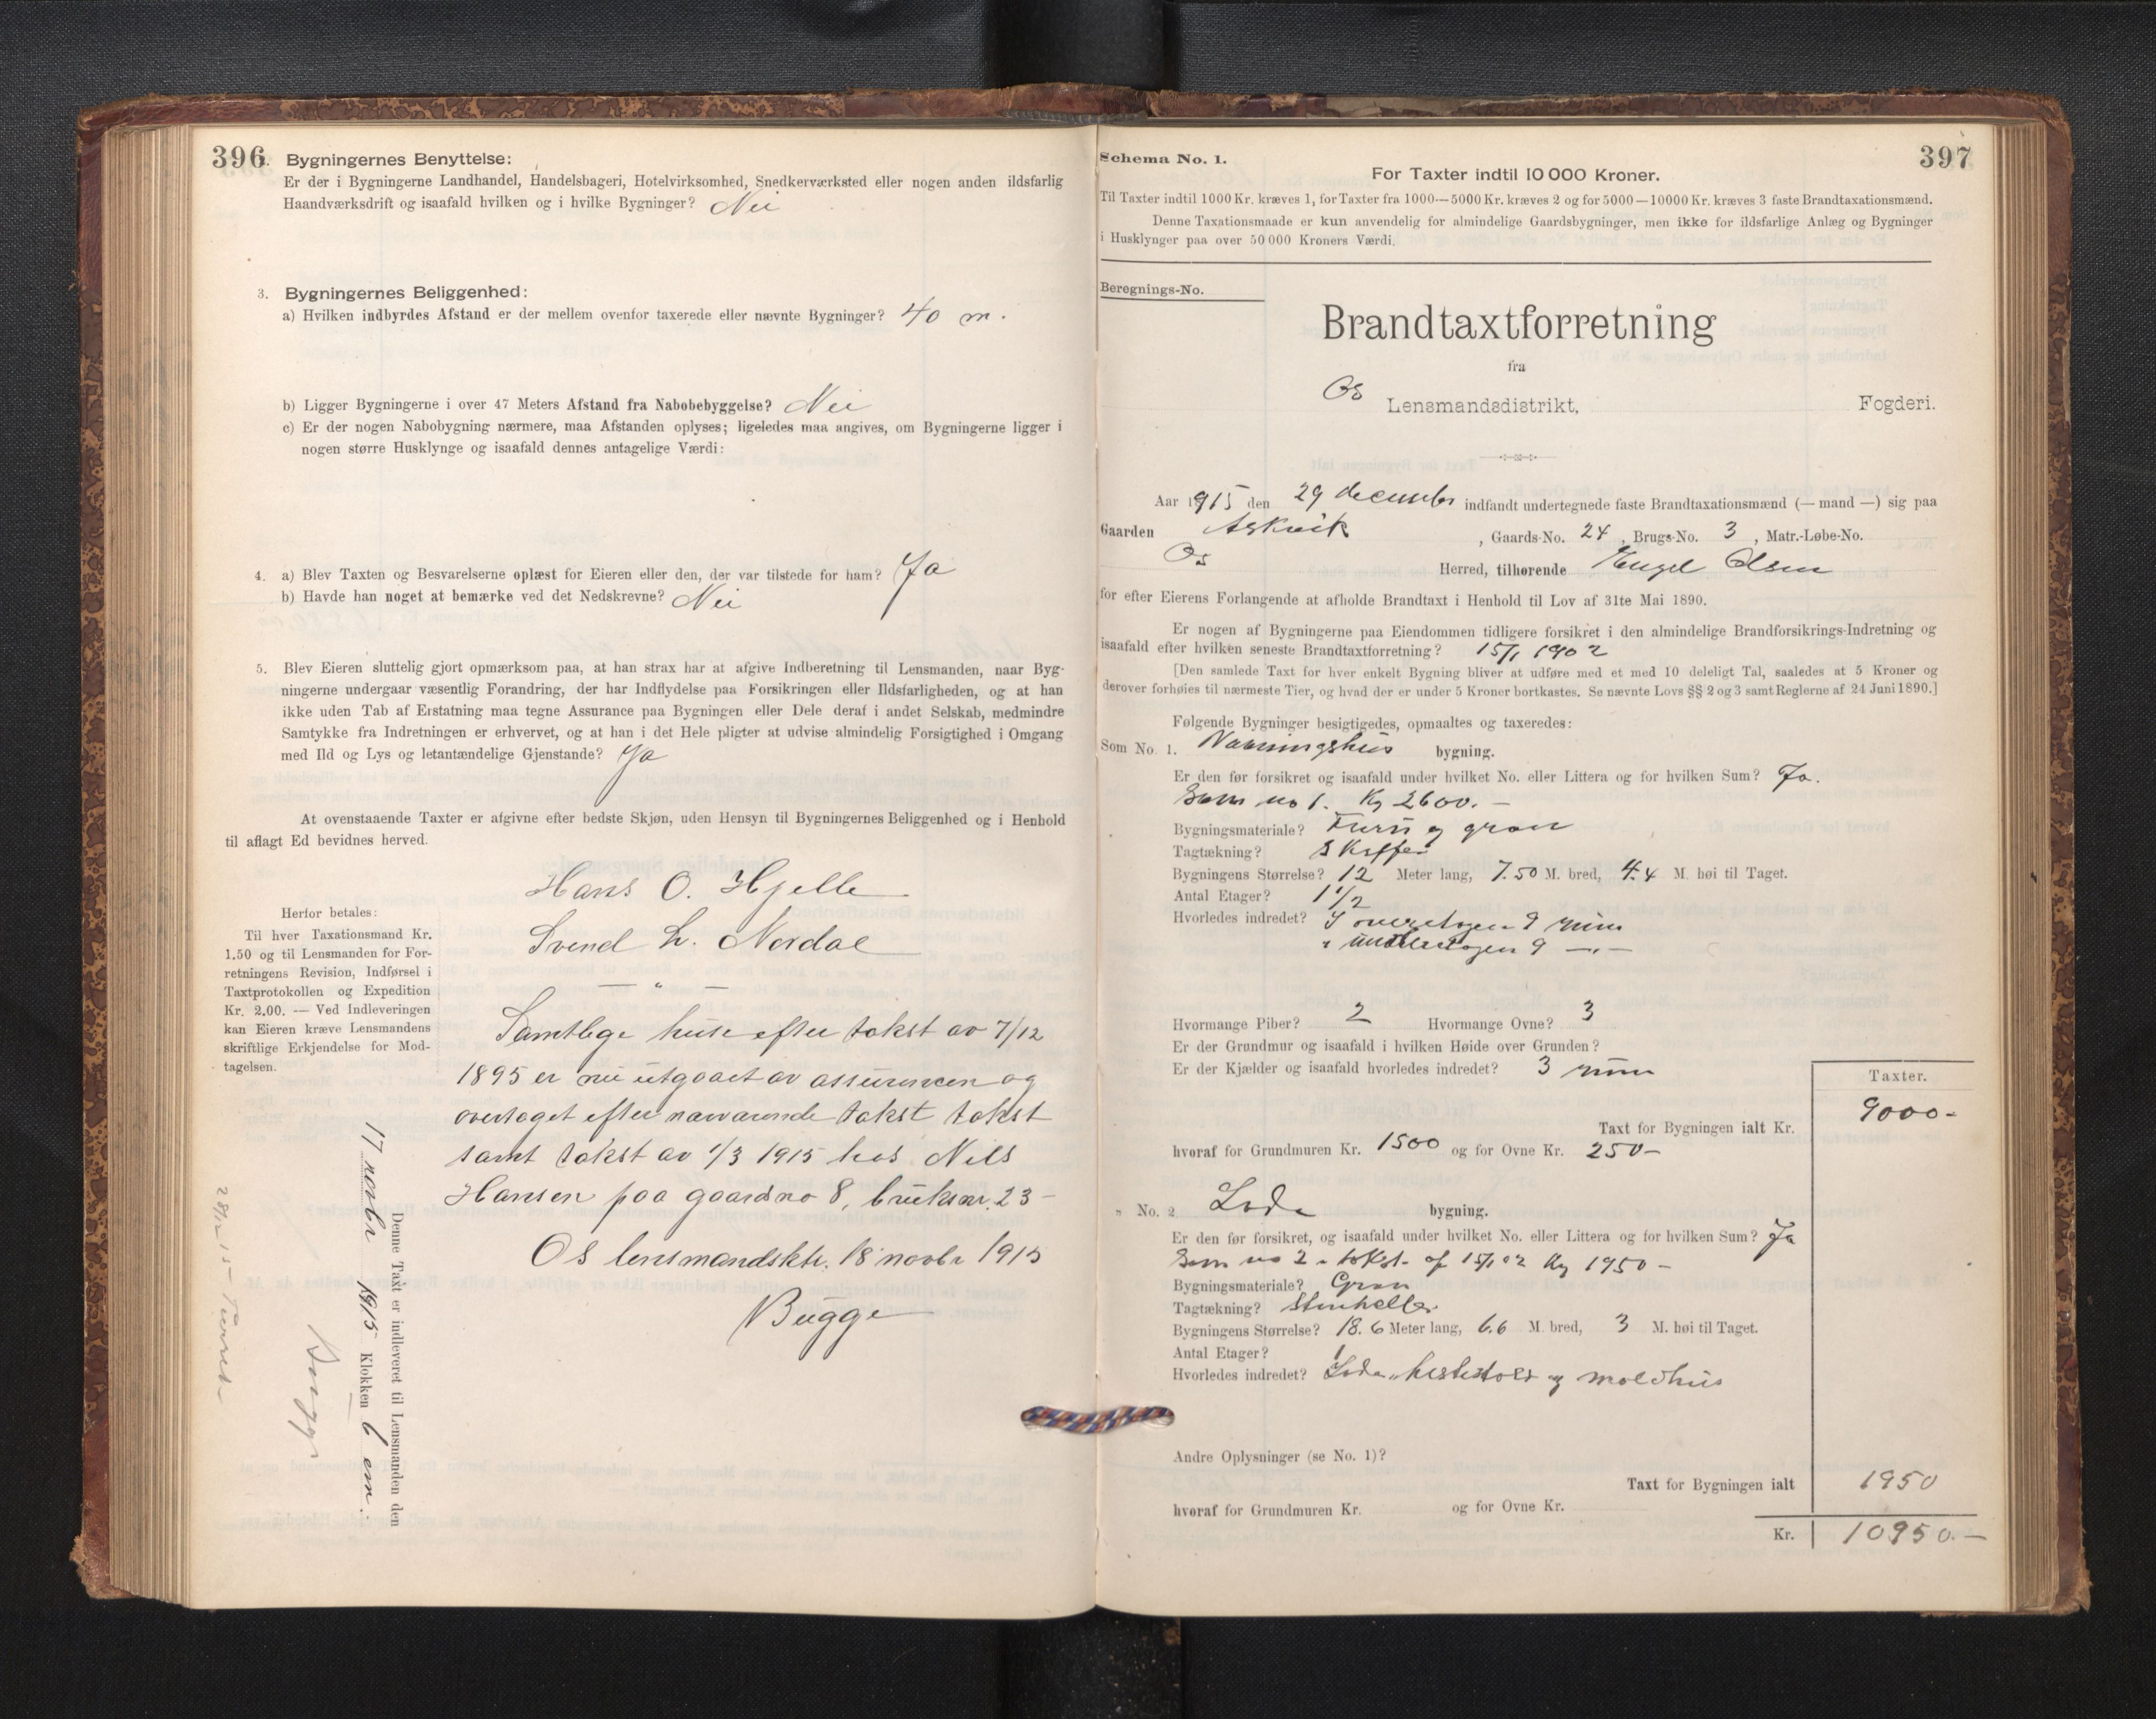 396.
Bygningernes Benyttelse:
Er der i Bygningerne Landhandel, Handelsbageri, Hotelvirksomhed, Snedkerværksted eller nogen anden ildsfarlig
Haandværksdrift og isaafald hvilken og i hvilke Bygninger? Nei
3. Bygningernes Beliggenhed:
a) Hvilken indbyrdes Afstand er der mellem ovenfor taxerede eller nævnte Bygninger? 40 m.
b) Ligger Bygningerne i over 47 Meters Afstand fra Nabobebyggelse? Nei
c) Er der nogen Nabobygning nærmere, maa Afstanden oplyses; ligeledes maa angives, om Bygningerne ligger i
nogen større Husklynge og isaafald dennes antagelige Værdi:
4. a) Blev Taxten og Besvarelserne oplæst for Eieren eller den, der var tilstede for ham? Ja
b) Havde han noget at bemærke ved det Nedskrevne? Nei
5. Blev Eieren sluttelig gjort opmærksom paa, at han strax har at afgive Indberetning til Lensmanden, naar Byg-
ningerne undergaar væsentlig Forandring, der har Indflydelse paa Forsikringen eller Ildsfarligheden, og at han
ikke uden Tab af Erstatning maa tegne Assurance paa Bygningen eller Dele deraf i andet Selskab, medmindre
Samtykke fra Indretningen er erhvervet, og at han i det Hele pligter at udvise almindelig Forsigtighed i Omgang
med Ild og Lys og letantændelige Gjenstande? Ja
At ovenstaaende Taxter er afgivne efter bedste Skjøn, uden Hensyn til Bygningernes Beliggenhed og i Henhold
til aflagt Ed bevidnes herved.
Hans O. Hjelle
Svend L. Nordal
— " —
Herfor betales:
Til hver Taxationsmand Kr.
1.50 og til Lensmanden for For-
retningens Revision, Indførsel i
Taxtprotokollen og Expedition
Kr. 2.00. — Ved Indleveringen
kan Eieren kræve Lensmandens
skriftlige Erkjendelse for Mod-
tagelsen.
Samtlige huse efter takst av 7/12
1895 er nu utgaaet av assurancen og
overtaget efter nærværende takst takst
samt takst av 1/3 1915 hos Nils
Hansen paa gaardno 8, bruksnr. 23 –
Os lensmandsktr. 18 novbr 1915
Bugge
Denne Taxt er indleveret til Lensmanden den
17 novbr 1915 Klokken 6 em.
Bugge
397
Schema No. 1.
For Taxter indtil 10 000 Kroner.
Til Taxter indtil 1000 Kr. kræves 1, for Taxter fra 1000—5000 Kr. kræves 2 og for 5000—10000 Kr. kræves 3 faste Brandtaxationsmænd.
Denne Taxationsmaade er kun anvendelig for almindelige Gaardsbygninger, men ikke for ildsfarlige Anlæg og Bygninger
i Husklynger paa over 50 000 Kroners Værdi.
Beregnings-No.
Brandtaxtforretning
fra
Os Lensmandsdistrikt, Fogderi.
Aar 1915 den 29 december indfandt undertegnede faste Brandtaxationsmænd (— mand —) sig paa
Gaarden Askvik, Gaards-No. 24, Brugs-No. 3, Matr.-Løbe-No.
Os Herred, tilhørende Engel Olsen
for efter Eierens Forlangende at afholde Brandtaxt i Henhold til Lov af 31te Mai 1890.
Er nogen af Bygningerne paa Eiendommen tidligere forsikret i den almindelige Brandforsikrings-Indretning og
isaafald efter hvilken seneste Brandtaxtforretning? 15/1 1902
[Den samlede Taxt for hver enkelt Bygning bliver at udføre med et med 10 deleligt Tal, saaledes at 5 Kroner og
derover forhøies til nærmeste Tier, og hvad der er under 5 Kroner bortkastes. Se nævnte Lovs §§ 2 og 3 samt Reglerne af 24 Juni 1890.]
Følgende Bygninger besigtigedes, opmaaltes og taxeredes:
Som No. 1. Vaaningshus bygning.
Er den før forsikret og isaafald under hvilket No. eller Littera og for hvilken Sum? Ja.
Som no 1. Kr 2600. –
Bygningsmateriale? Furu og gran
Tagtækning? Skiffer
Bygningens Størrelse? 12 Meter lang, 7.50 M. bred, 4.4 M. høi til Taget.
Antal Etager? 1 1/2
Hvorledes indredet? I overetagen 9 rum
i underetagen 9 —.—
Hvormange Piber? 2 Hvormange Ovne? 3
Er der Grundmur og isaafald i hvilken Høide over Grunden?
Er der Kjælder og isaafald hvorledes indredet? 3 rum
Taxter.
Taxt for Bygningen ialt Kr. 9000-
hvoraf for Grundmuren Kr. 1500 og for Ovne Kr. 250–
" No. 2 Lade bygning.
Er den før forsikret, og isaafald under hvilket No. eller Littera og for hvilken Sum? Ja
Som no 2 i takst af 15/1 02 Kr 1950 –
Bygningsmateriale? Gran
Tagtækning? Stenheller
Bygningens Størrelse? 18.6 Meter lang, 6.6 M. bred, 3 M. høi til Taget.
Antal Etager? 1
Hvorledes indredet? Lade, hestestald og moldhus
Andre Oplysninger (se No. 1)?
Taxt for Bygningen ialt 1950
hvoraf for Grundmuren Kr. og for Ovne Kr.
Kr. 10950.–